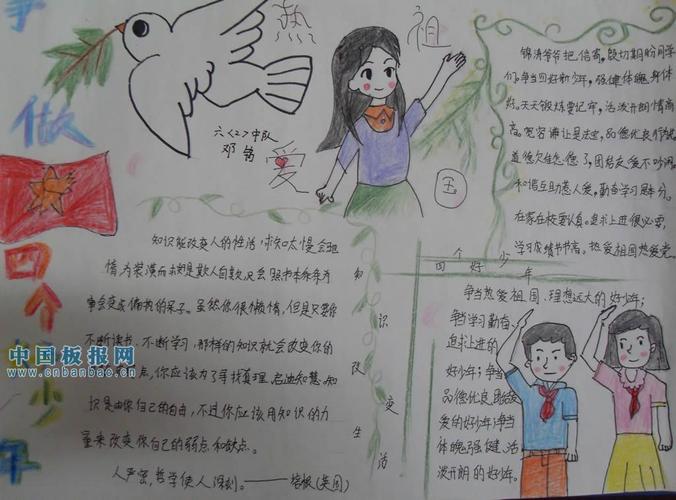 争
做
四个
少
年
热
爱
祖
国
六〈2〉中队
锦涛爷爷把信寄,殷切期盼同学
们。争当四好新少年,强健体魄身体
练。天天锻炼要记牢,活泼开朗情商
高。宽容谦让是法宝,品德优良
道德欠佳怎 了,团结友爱不吵闹
和谐互助惹人爱,勤奋学习是本分。
在家在校要认真。追求上进很必要,
学习成绩节节高。热爱祖国热爱党。
知识能改变人的性活,求知太慢会驰
惰,为装潢而求知是欺人自欺,只会照书本条条办
事会变成偏执的呆子。虽然你很懒惰,但是只要你
不断读书、不断学习,那样的知识就会改变你的
点,你应该为了寻找真理、启迪智慧。知
识是由你自己的自由,不过你应该用知识的力
量来改变你自己的弱点和缺点。
人严密,哲学使人深刻。——培根(英国)
知识改变生活
四个好少年
争当热爱祖国、理想远大的好少年;
争当学习勤奋、
追求上进的
好少年;争当
品德优良、团结友
爱的好少年;争当
体魄强健、活
泼开朗的好少年。
中国板报网
www.cnbanbao.cn